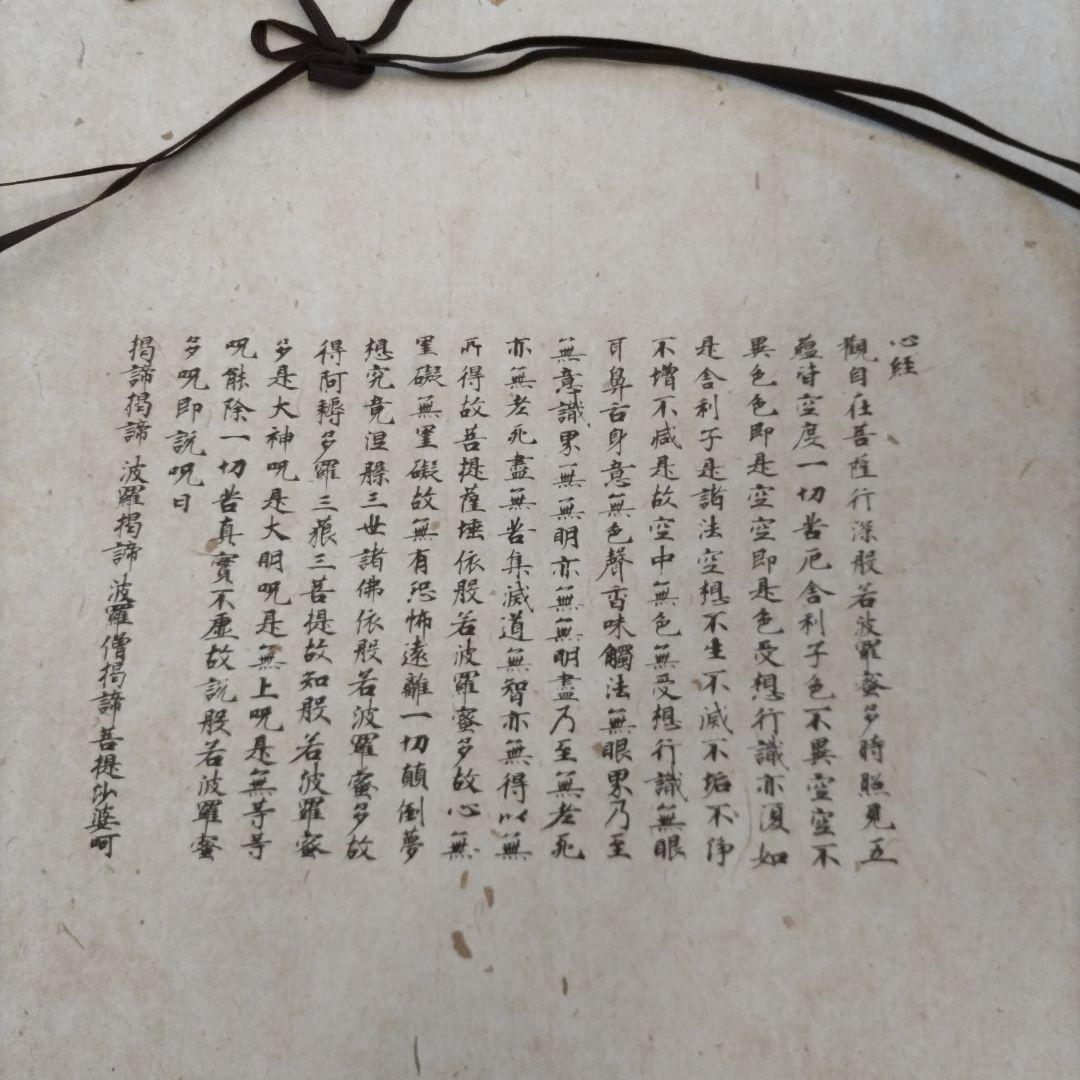 心経
觀自在菩薩行深般若波羅蜜多時照見五
蘊皆空度一切苦厄舍利子色不異空空不
異色色即是空空即是色受想行識亦復如
是舍利子是諸法空想不生不滅不垢不净
不增不減是故空中無色無受想行識無眼
耳鼻舌身意無色聲香味觸法無眼界乃至
無意識界無無明亦無無明盡乃至無老死
亦無老死盡無苦集滅道無智亦無得以無
所得故菩提薩埵依般若波羅蜜多故心無
罣礙無罣礙故無有恐怖遠離一切顛倒夢
想究竟涅槃三世諸佛依般若波羅蜜多故
得阿耨多羅三藐三菩提故知般若波羅蜜
多是大神呪是大明呪是無上呪是無等等
呪能除一切苦真實不虛故說般若波羅蜜
多呪即說呪曰
揭諦揭諦 波羅揭諦 波羅僧揭諦 菩提沙婆呵